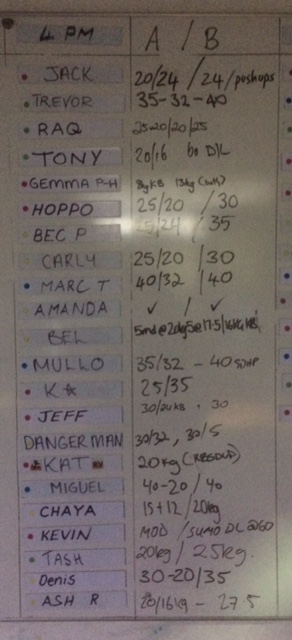 4 PM A / B
JACK 20/24 / 24/pushups
TREVOR 35-32-40
RAQ 25-20/20/25
TONY 20/16 60 DL
GEMMA P-H 8kg KB 13kg
HOPPO 25/20 / 30
BEC P 25/24 / 35
CARLY 25/20 / 30
MARC T 40/32 / 40
AMANDA ✓ / ✓
BEL
MULLO 35/32 - 40 SDHP
K☆ 25/35
JEFF 30/24KB . 30
DANGERMAN 30/32, 30/5
KAT 20kg
MIGUEL 40-20 / 40
CHAYA 15+12 / 20kg
KEVIN MOD / SUMO DL @60
TASH 20kg / 25kg.
Denis 30-20/35
ASH R 20/16kg - 27.5